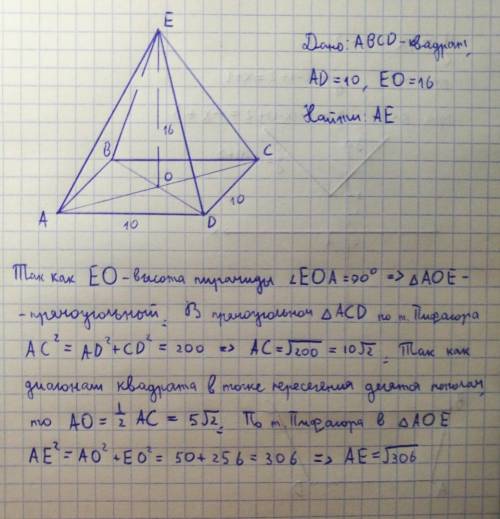 E
Дано: ABCD - квадрат,
AD = 10, EO = 16
Найти: AE
16
B
C
O
A
10
D
10
Так как EO - высота пирамиды ∠EOA = 90° => △AOE -
- прямоугольный. В прямоугольном △ACD по т. Пифагора
AC² = AD² + CD² = 200 => AC = √200 = 10√2. Так как
диагонали квадрата в точке пересечения делятся пополам,
то AO = ½ AC = 5√2. По т. Пифагора в △AOE
AE² = AO² + EO² = 50 + 256 = 306 => AE = √306